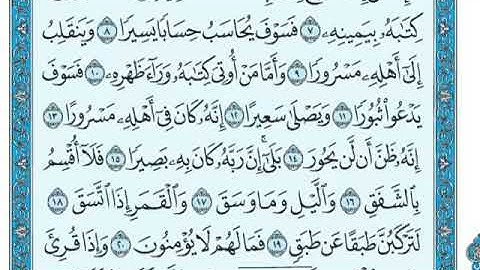 كِتَٰبَهُۥ بِيَمِينِهِۦ ٧ فَسَوْفَ يُحَاسَبُ حِسَابًا يَسِيرًا ٨ وَيَنقَلِبُ
إِلَىٰٓ أَهْلِهِۦ مَسْرُورًا ٩ وَأَمَّا مَنْ أُوتِيَ كِتَٰبَهُۥ وَرَآءَ ظَهْرِهِۦ ١٠ فَسَوْفَ
يَدْعُوا۟ ثُبُورًا ١١ وَيَصْلَىٰ سَعِيرًا ١٢ إِنَّهُۥ كَانَ فِىٓ أَهْلِهِۦ مَسْرُورًا ١٣
إِنَّهُۥ ظَنَّ أَن لَّن يَحُورَ ١٤ بَلَىٰٓ إِنَّ رَبَّهُۥ كَانَ بِهِۦ بَصِيرًا ١٥ فَلَآ أُقْسِمُ
بِٱلشَّفَقِ ١٦ وَٱلَّيْلِ وَمَا وَسَقَ ١٧ وَٱلْقَمَرِ إِذَا ٱتَّسَقَ ١٨
لَتَرْكَبُنَّ طَبَقًا عَن طَبَقٍ ١٩ فَمَا لَهُمْ لَا يُؤْمِنُونَ ٢٠ وَإِذَا قُرِئَ